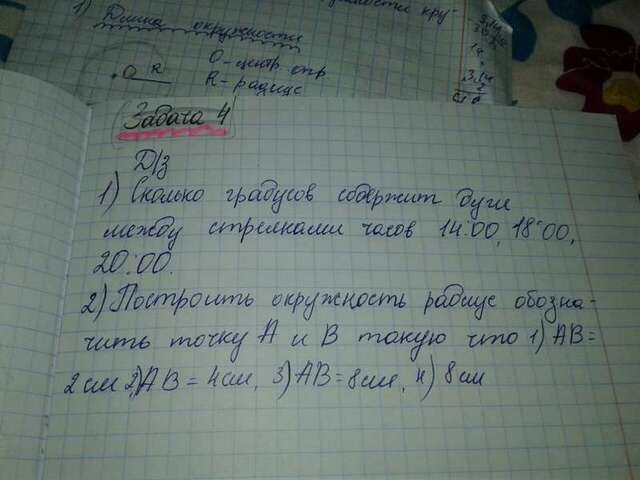 1) Длина окружности
О - центр окр
R - радиус
О R
3,14
2
Задача 4
Д/з
1) Сколько градусов содержит дуги
между стрелками часов 14:00, 18:00,
20:00.
2) Построить окружность радиус обозна-
чить точку А и В такую что 1) АВ=
2 см 2) АВ = 4см, 3) АВ = 8см, 4) 8 см